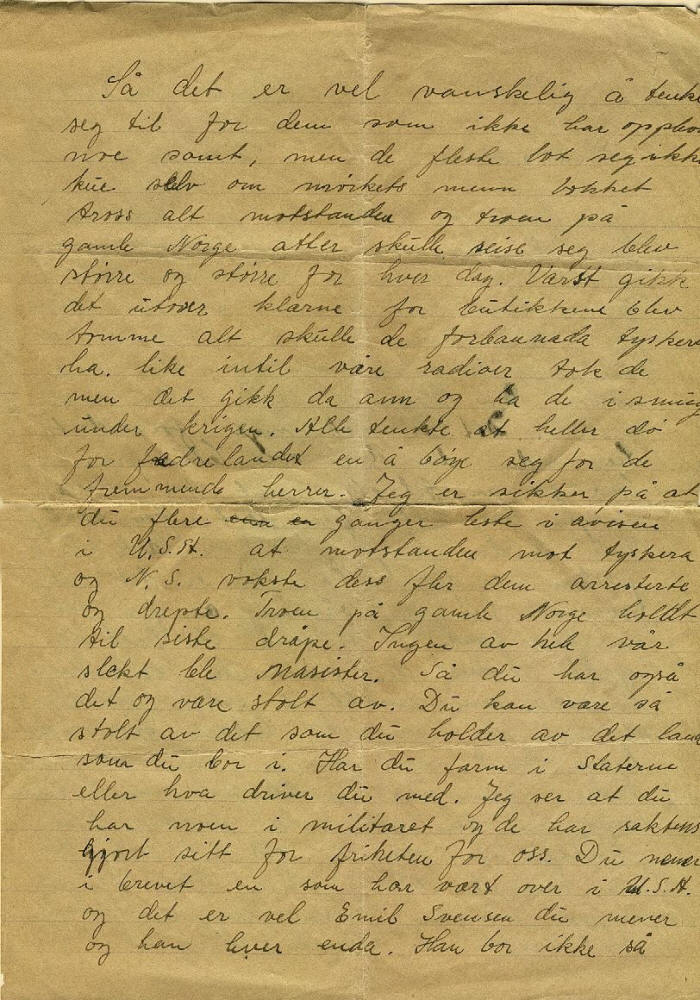 Så det er vel vanskelig å tenk
seg til for dem som ikke har opplev
noe samt, men de fleste lot seg ikke
kue selv om mørkets menn
tross alt motstanden og troen på
gamle Norge atter skulle reise seg blev
større og større for hver dag. Værst gikk
det utover klærne for butikkene blev
tomme alt skulle de forbannada tyskera
ha. like intil våre radioer tok de
men det gikk da ann og ha de i smug
under krigen. Alle tenkte at heller dø
for fædrelandet en å bøye seg for de
fremmende herrer. Jeg er sikker på at
du flere ganger leste i avisene
i U.S.A. at motstanden mot tyskera
og N.S. vokste dess fler dem arresterte
og drepte. Troen på gamle Norge holdt
til siste dråpe. Ingen av hele vår
slekt ble Nasister. Så du har også
det og være stolt av. Du kan være så
stolt av det som du holder av det land
som du bor i. Har du farm i Staterne
eller hva driver du med. Jeg ser at du
har noen i militæret og de har saktens
gjort sitt for friheten for oss. Du nevner
i brevet en som har vært over i U.S.A.
og det er vel Emil Svensen du mener
og han lever enda. Han bor ikke så